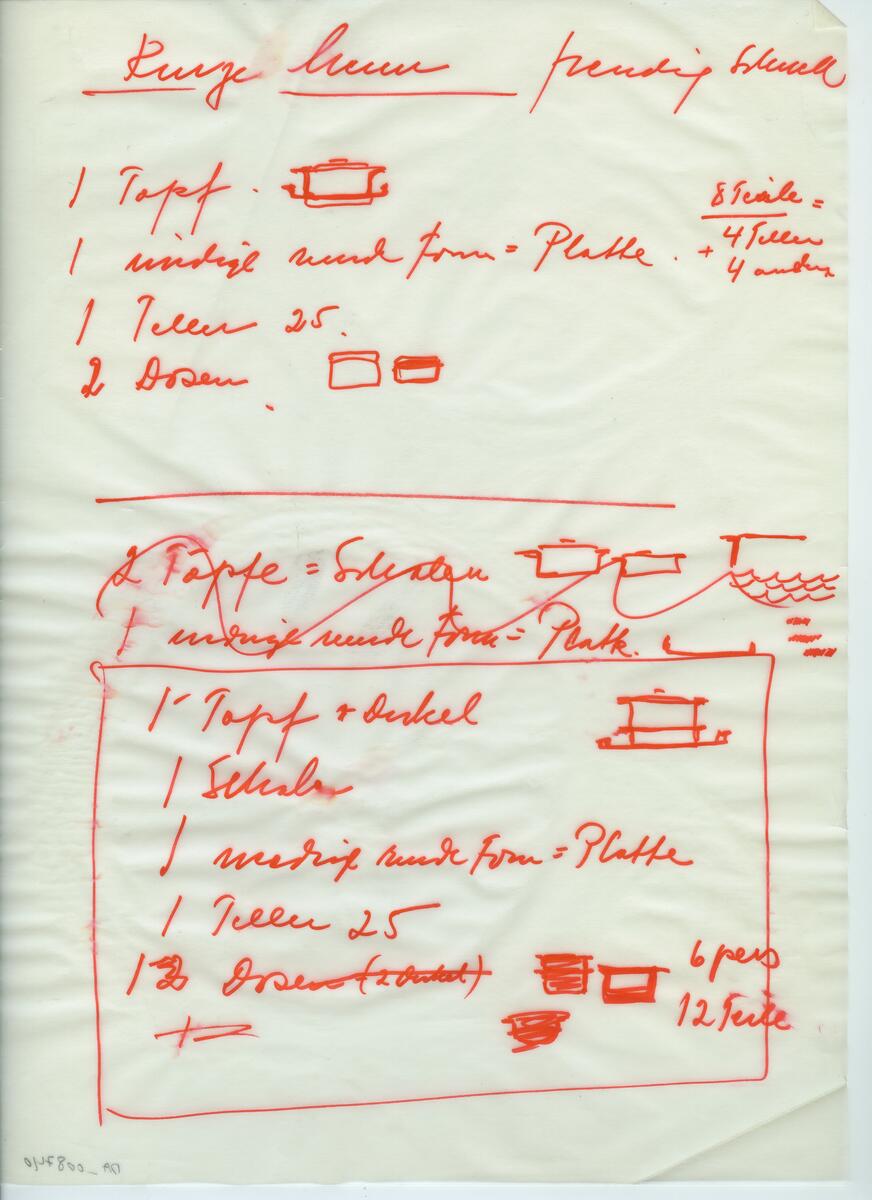 1 Topf.
8 Teile =
1 niedrige runde Form = Platte. +
4 Teller
4 andere
1 Teller 25.
2 Dosen
2 Töpfe = Schalen
1 niedrige runde Form = Platte.
1 Topf + Deckel
1 Schale
1 niedrige runde Form = Platte
1 Teller 25
1 Dosen (2 Deckel)
6 pers
12 Teile